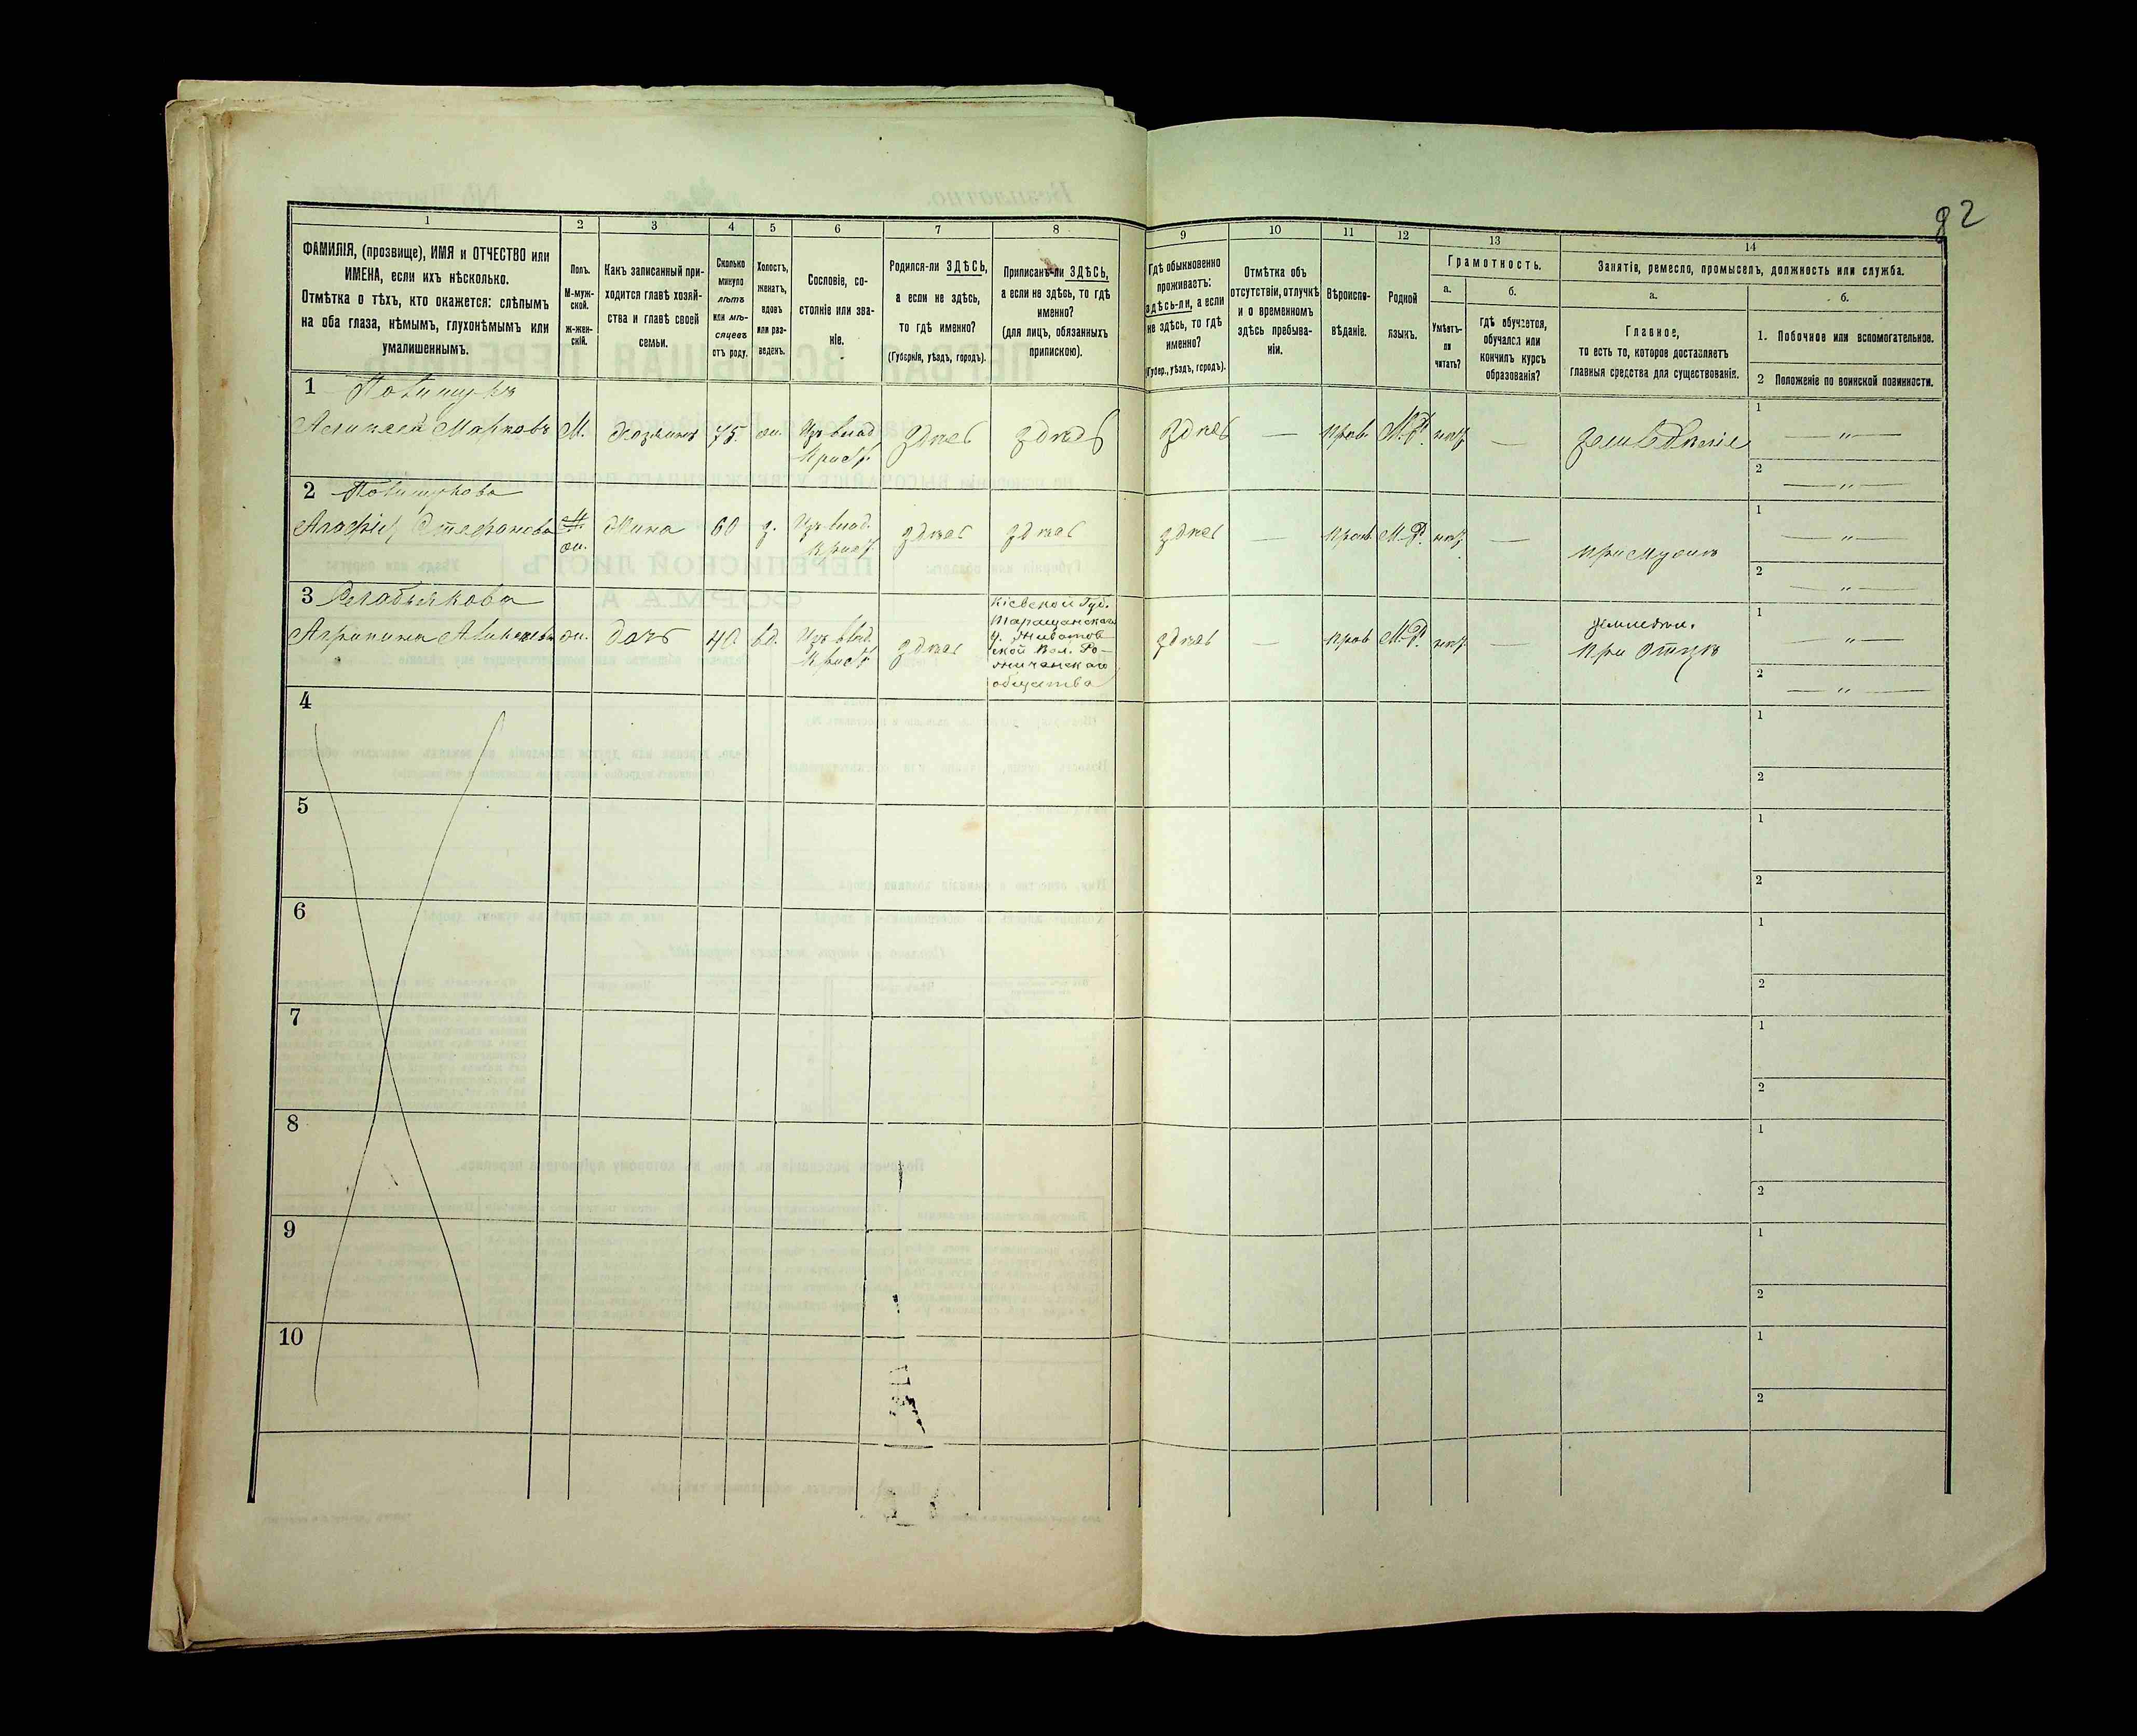 82
1
2
3
4
5
6
7
8
9
10
11
12
13
14
ФАМИЛІЯ, (прозвище), ИМЯ и ОТЧЕСТВО или
ИМЕНА, если ихъ нѣсколько.
Отмѣтка о тѣхъ, кто окажется: слѣпымъ
на оба глаза, нѣмымъ, глухонѣмымъ или
умалишеннымъ.
Полъ.
М-муж-
ской.
ж-жен-
скій.
Какъ записанный при-
ходится главѣ хозяй-
ства и главѣ своей
семьи.
Сколько
минуло
лѣтъ
или мѣ-
сяцевъ
отъ роду.
Холостъ,
женатъ,
вдовъ
или раз-
веденъ.
Сословіе, со-
стояніе или зва-
ніе.
Родился-ли ЗДѢСЬ,
а если не здѣсь,
то гдѣ именно?
(Губернія, уѣздъ, городъ).
Приписанъ-ли ЗДѢСЬ,
а если не здѣсь, то гдѣ
именно?
(для лицъ, обязанныхъ
припискою).
Гдѣ обыкновенно
проживаетъ:
здѣсь-ли, а если
не здѣсь, то гдѣ
именно?
(Губер., уѣздъ, городъ).
Отмѣтка объ
отсутствіи, отлучкѣ
и о временномъ
здѣсь пребыва-
ніи.
Вѣроиспо-
вѣданіе.
Родной
языкъ.
Грамотность.
а.
Умѣетъ-
ли
читать?
б.
гдѣ обучается,
обучался или
кончилъ курсъ
образованія?
Занятія, ремесло, промыселъ, должность или служба.
а.
Главное,
то есть то, которое доставляетъ
главныя средства для существованія.
б.
1. Побочное или вспомогательное.
2 Положеніе по воинской повинности.
1
Марковъ М. Хозяинъ 75 ж. Изъ влад. здѣсь здѣсь здѣсь — прав. М.Р. нѣт — земледѣліе
Крест.
1 — „ —
2 — „ —
2
Стефанова ж. Жина 60 з. Изъ влад. здѣсь здѣсь здѣсь — прав М.Р. нѣт — при мужѣ
Крест.
1 — „ —
2 — „ —
3
ж. дочь 40 вд. Изъ влад. здѣсь
Крест.
Кіевской Губ.
Таращанскаго
у. Животов
ской Вол.
общества
здѣсь — прав М.Р. нѣт —
при отцѣ
1 — „ —
2 — „ —
4
1
2
5
1
2
6
1
2
7
1
2
8
1
2
9
1
2
10
1
2